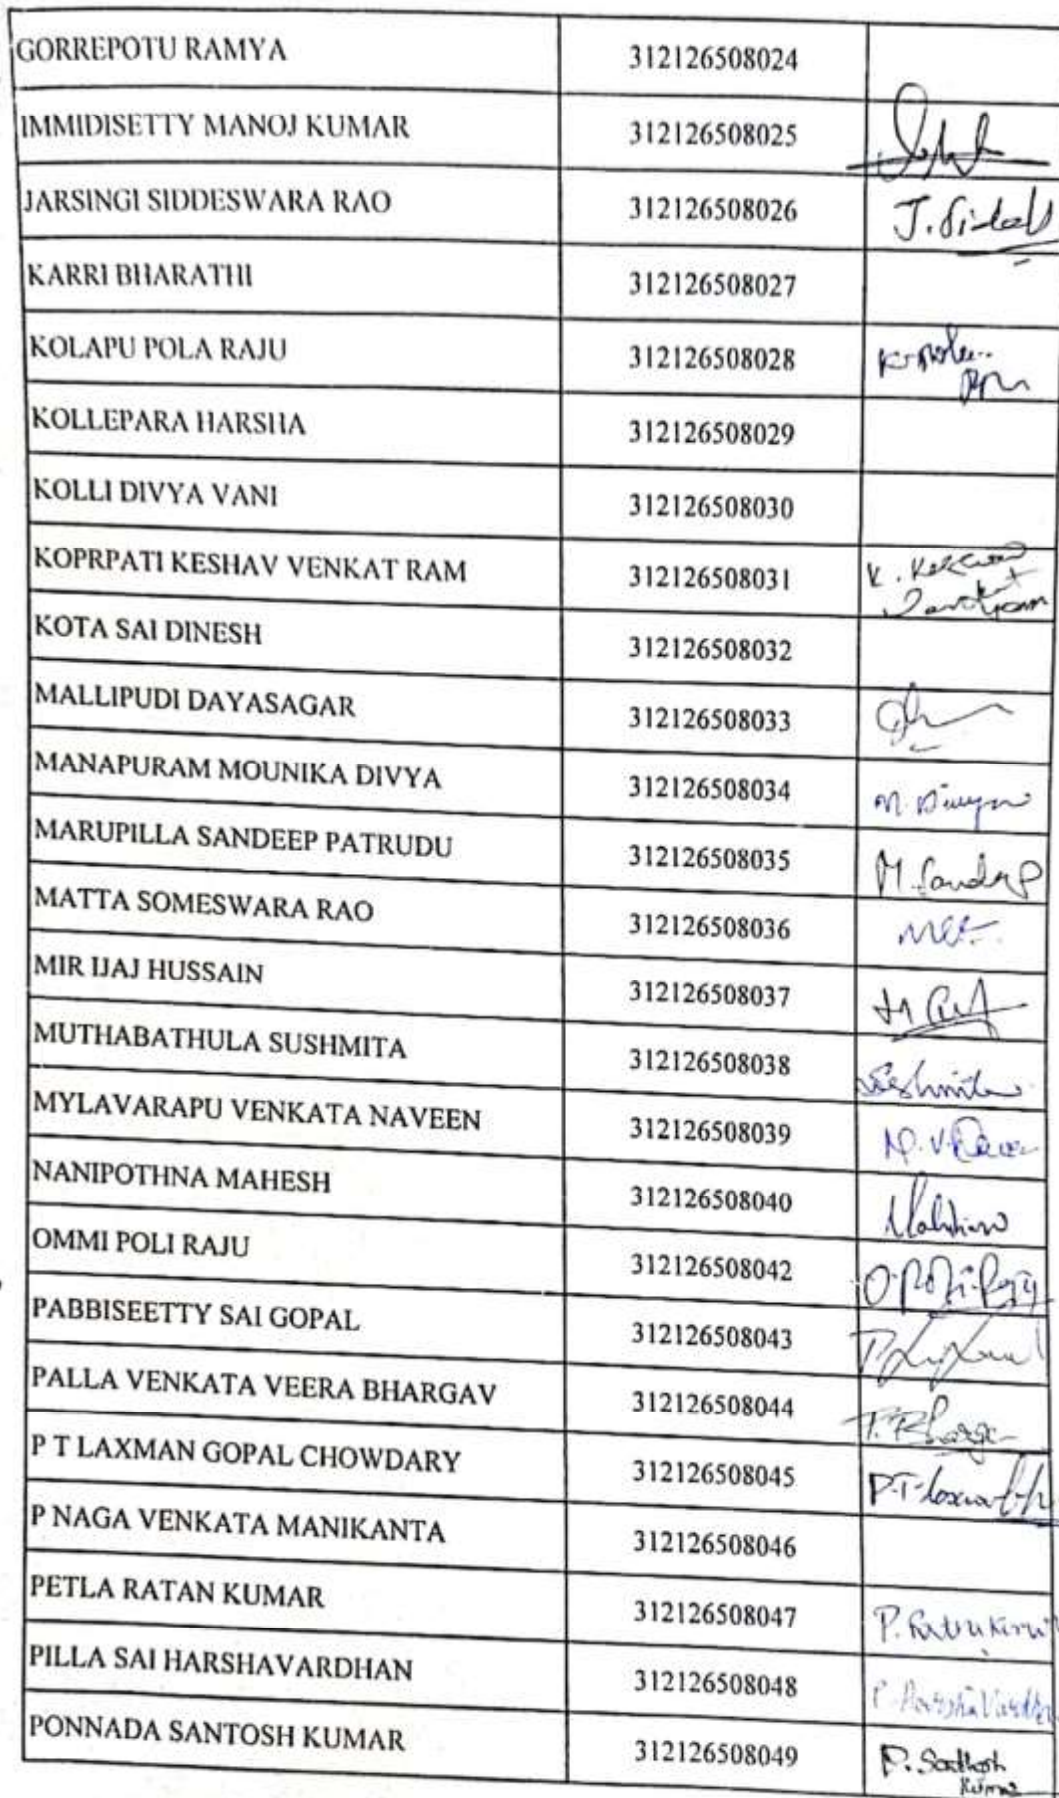 GORREPOTU RAMYA 312126508024
IMMIDISETTY MANOJ KUMAR 312126508025
JARSINGI SIDDESWARA RAO 312126508026 J.
KARRI BHARATHI 312126508027
KOLAPU POLA RAJU 312126508028
KOLLEPARA HARSHA 312126508029
KOLLI DIVYA VANI 312126508030
KOPRPATI KESHAV VENKAT RAM 312126508031 K.
KOTA SAI DINESH 312126508032
MALLIPUDI DAYASAGAR 312126508033
MANAPURAM MOUNIKA DIVYA 312126508034 M.
MARUPILLA SANDEEP PATRUDU 312126508035 M. Sandeep
MATTA SOMESWARA RAO 312126508036
MIR IJAJ HUSSAIN 312126508037
MUTHABATHULA SUSHMITA 312126508038
MYLAVARAPU VENKATA NAVEEN 312126508039
NANIPOTHNA MAHESH 312126508040
OMMI POLI RAJU 312126508042
PABBISEETTY SAI GOPAL 312126508043
PALLA VENKATA VEERA BHARGAV 312126508044
P T LAXMAN GOPAL CHOWDARY 312126508045
P NAGA VENKATA MANIKANTA 312126508046
PETLA RATAN KUMAR 312126508047 P.
PILLA SAI HARSHAVARDHAN 312126508048
PONNADA SANTOSH KUMAR 312126508049 P. Santhosh
Kumar